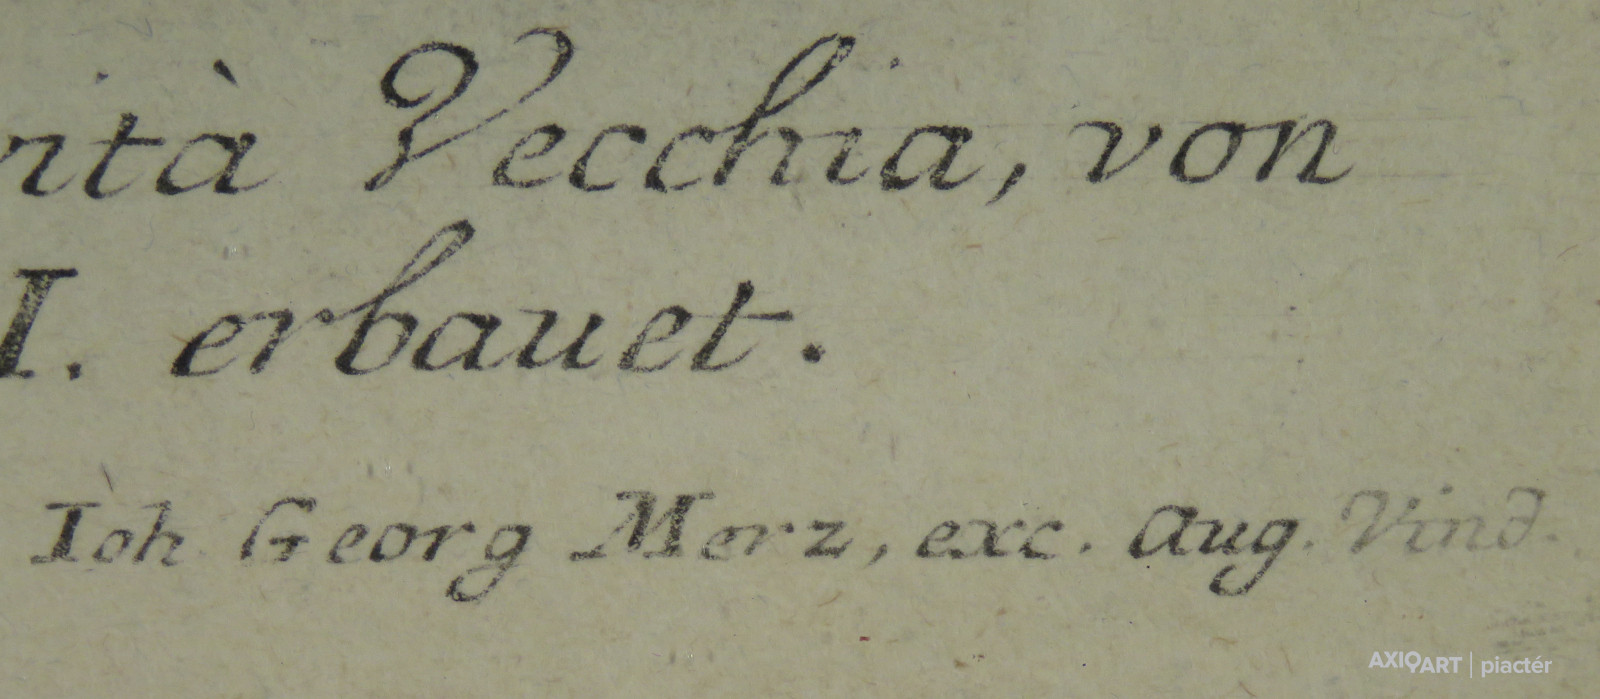 ità Vecchia, von
I. erbauet.
Ioh Georg Merz, exc. Aug. Vind.
AXIOART | piactér